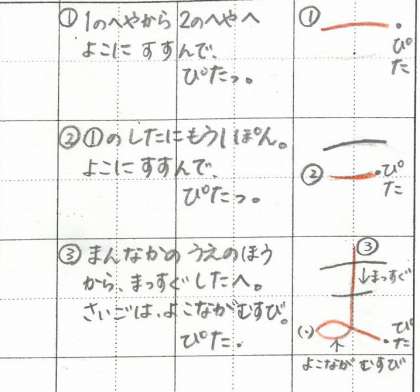 ① 1のへやから 2のへやへ
よこに すすんで、
ぴたっ。
①
ぴた
② ①のしたにもう1ぽん。
よこに すすんで、
ぴたっ。
②
ぴた
③ まんなかの うえのほう
から、まっすぐしたへ。
さいごは、よこながむすび。
ぴた.
③
↓まっすぐ
ぴた
よこなが むすび